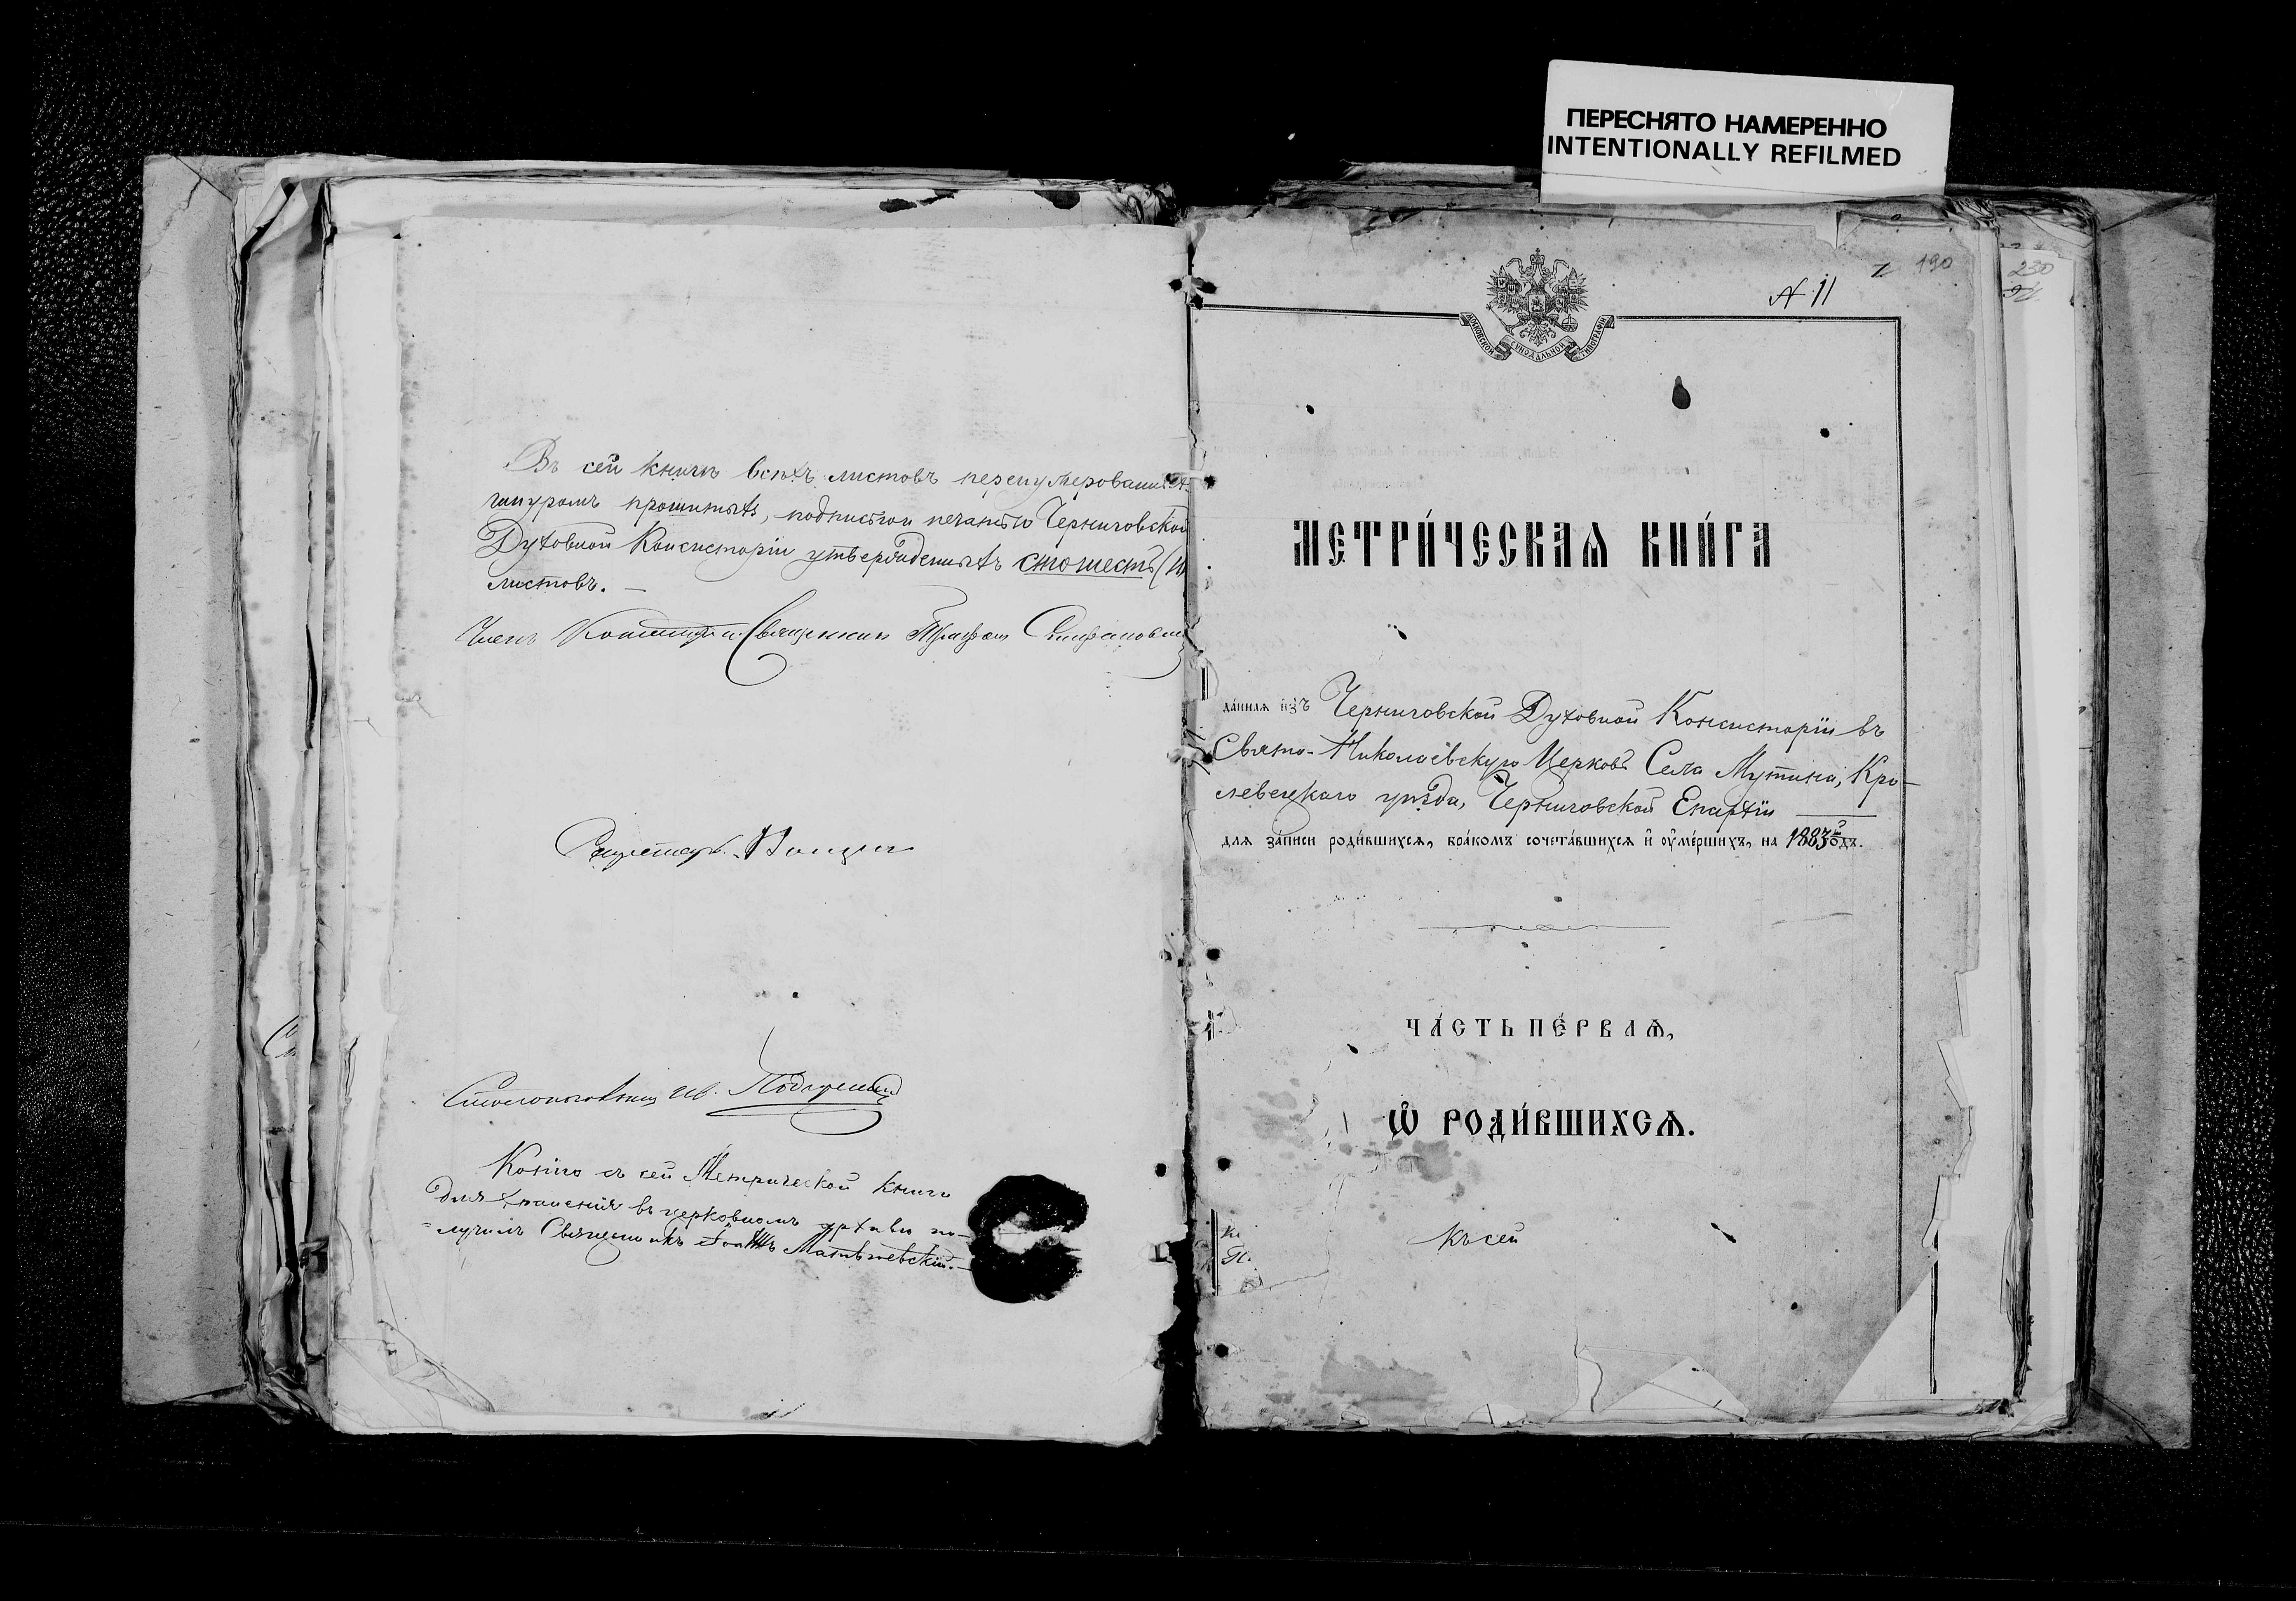 ПЕРЕСНЯТО НАМЕРЕННО
INTENTIONALLY REFILMED
Въ сей книгѣ всѣхъ листовъ перенумерованныхъ
шнуромъ прошитыхъ, подписью и печатью Черниговской
Духовной Консисторіи утвержденныхъ сто шесть (
листовъ. —
Членъ Консисторіи Священникъ
Секретарь
Столоначальникъ Ив.
Копію съ сей Метрической книги
для храненія въ церковномъ архивѣ по-
лучилъ Священникъ
№ 11
190
230
МОСКОВСКОЙ СѴНОДАЛЬНОЙ ТИПОГРАФІИ
МЕТРИ́ЧЕСКАѦ КНИ́ГА
да́ннаѧ и҆зъ Черниговской Духовной Консисторіи въ
Свято-Николаевскую Церковь Села Мутина, Кро-
левецкаго уѣзда, Черниговской Епархіи
для за́писи роди́вшихсѧ, бра́комъ сочета́вшихсѧ и҆ оу҆ме́ршихъ, на 1883й годъ.
ЧА́СТЬ ПЕ́РВАѦ,
Ѽ РОДИ́ВШИХСѦ.
Къ сей